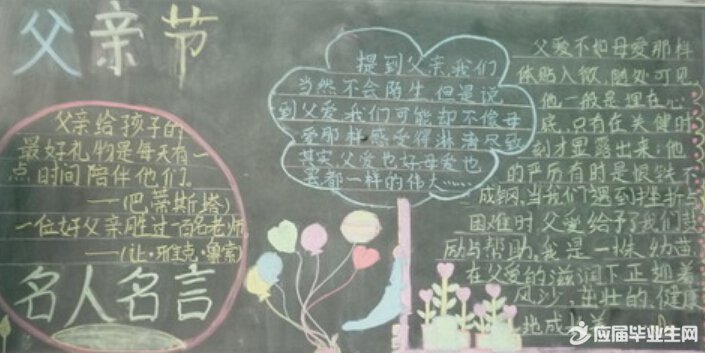 父亲节
父亲给孩子的
最好礼物是每天有一
点时间陪伴他们。
——(巴蒂斯塔)
一位好父亲胜过一百名老师
——(让·雅克·鲁索)
名人名言
提到父亲,我们
当然不会陌生,但是说
到父爱我们可能却不像母
爱那样感受得淋漓尽致
其实父爱也好母爱也
罢都一样的伟大……
父爱不如母爱那样
体贴入微,随处可见
他一般是埋在心
底,只有在关健时
刻才显露出来;他
的严厉有时是恨铁不
成钢,当我们遇到挫折与
困难时父爱给予了我们鼓
励与帮助。我是一株幼苗
在父爱的滋润下正迎着
风沙,茁壮的,健康
地成
应届毕业生网